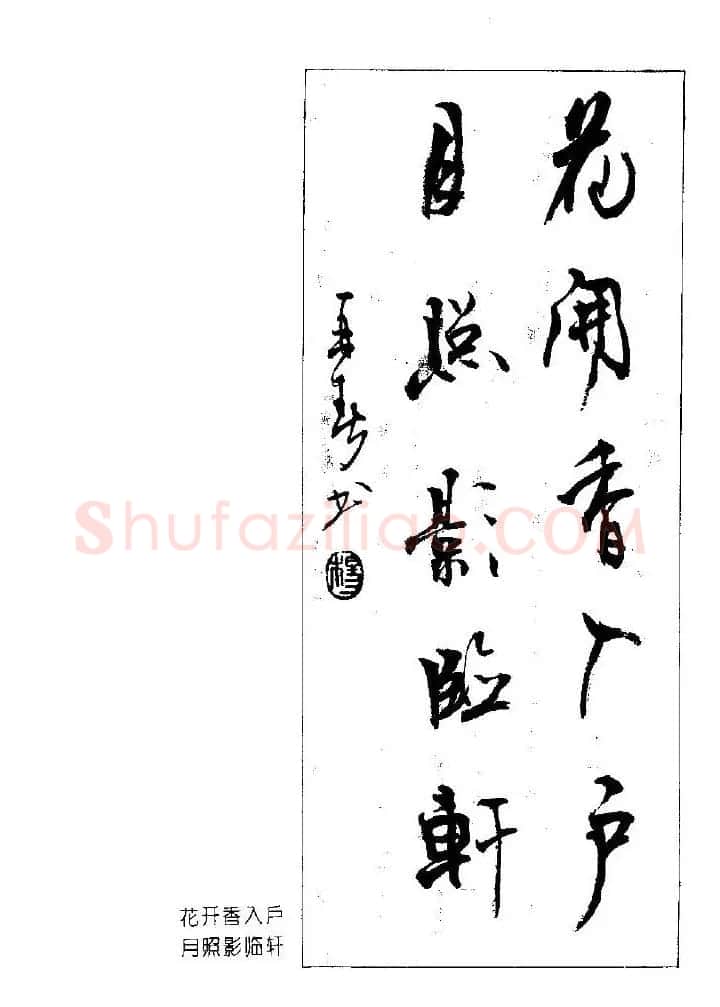 花開香入戶
月照影臨軒
書
花开香入户
月照影临轩
Shufaziliao.COM